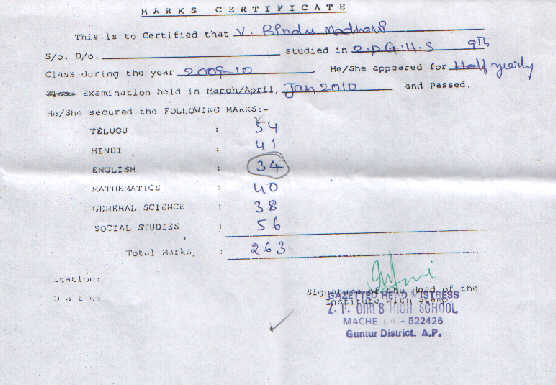 MARKS CERTIFICATE
This is to Certified that V. Bindu Madhavi
S/o. D/o. studied in Z.P.G.H.S 9th
Class during the year 2009-10 He/She appeared for Half yearly
Examination held in March/April, Jan 2010 and Passed.
He/She secured the FOLLOWING MARKS:-
TELUGU : 54
HINDI : 41
ENGLISH : 34
MATHEMATICS : 40
GENERAL SCIENCE : 38
SOCIAL STUDIES : 56
Total Marks, : 263
Station:
Date
Signature of the Head of the
Institute
GAZETTED HEAD MISTRESS
Z. P. GIRLS HIGH SCHOOL
522426
Guntur District. A.P.